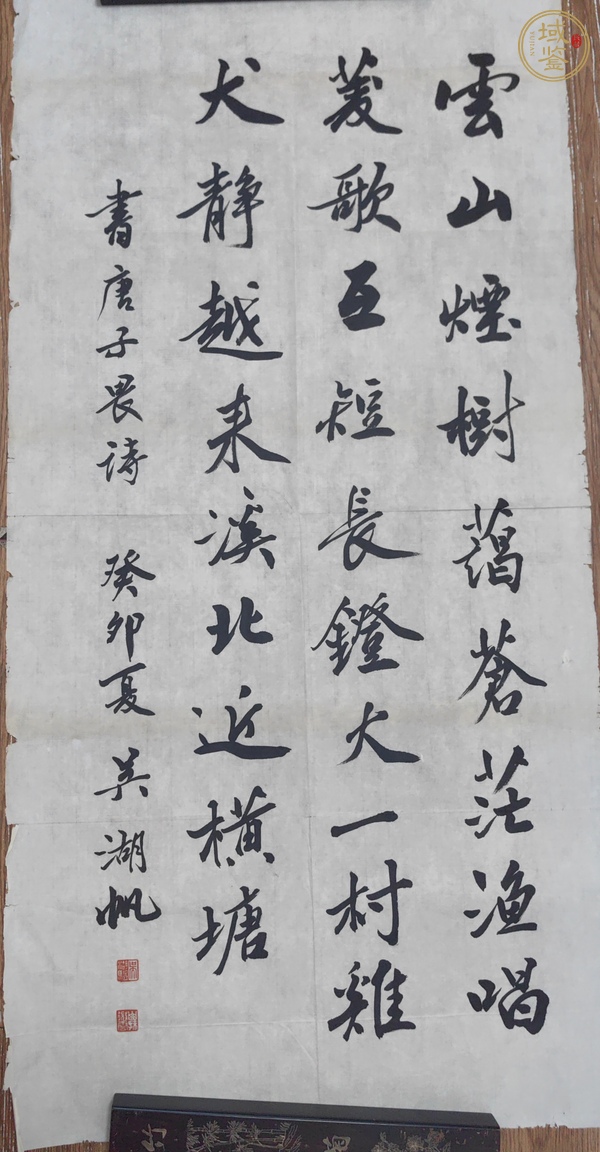 雲山煙樹藹蒼茫漁唱
菱歌互短長鐙火一村雞
犬靜越来溪北近橫塘
書唐子畏詩 癸卯夏 吴湖帆
域鑒
YUJIAN